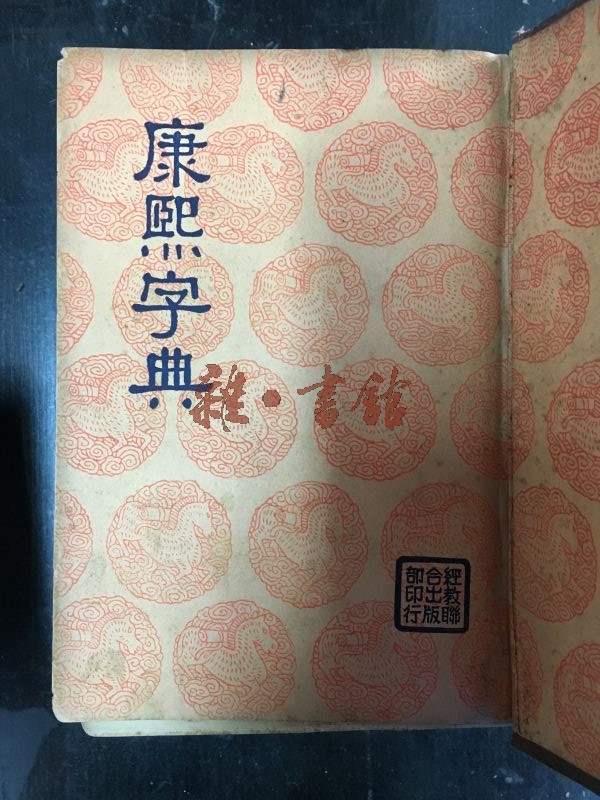 康熙字典
雜·書館
經教聯
合出版
部印行